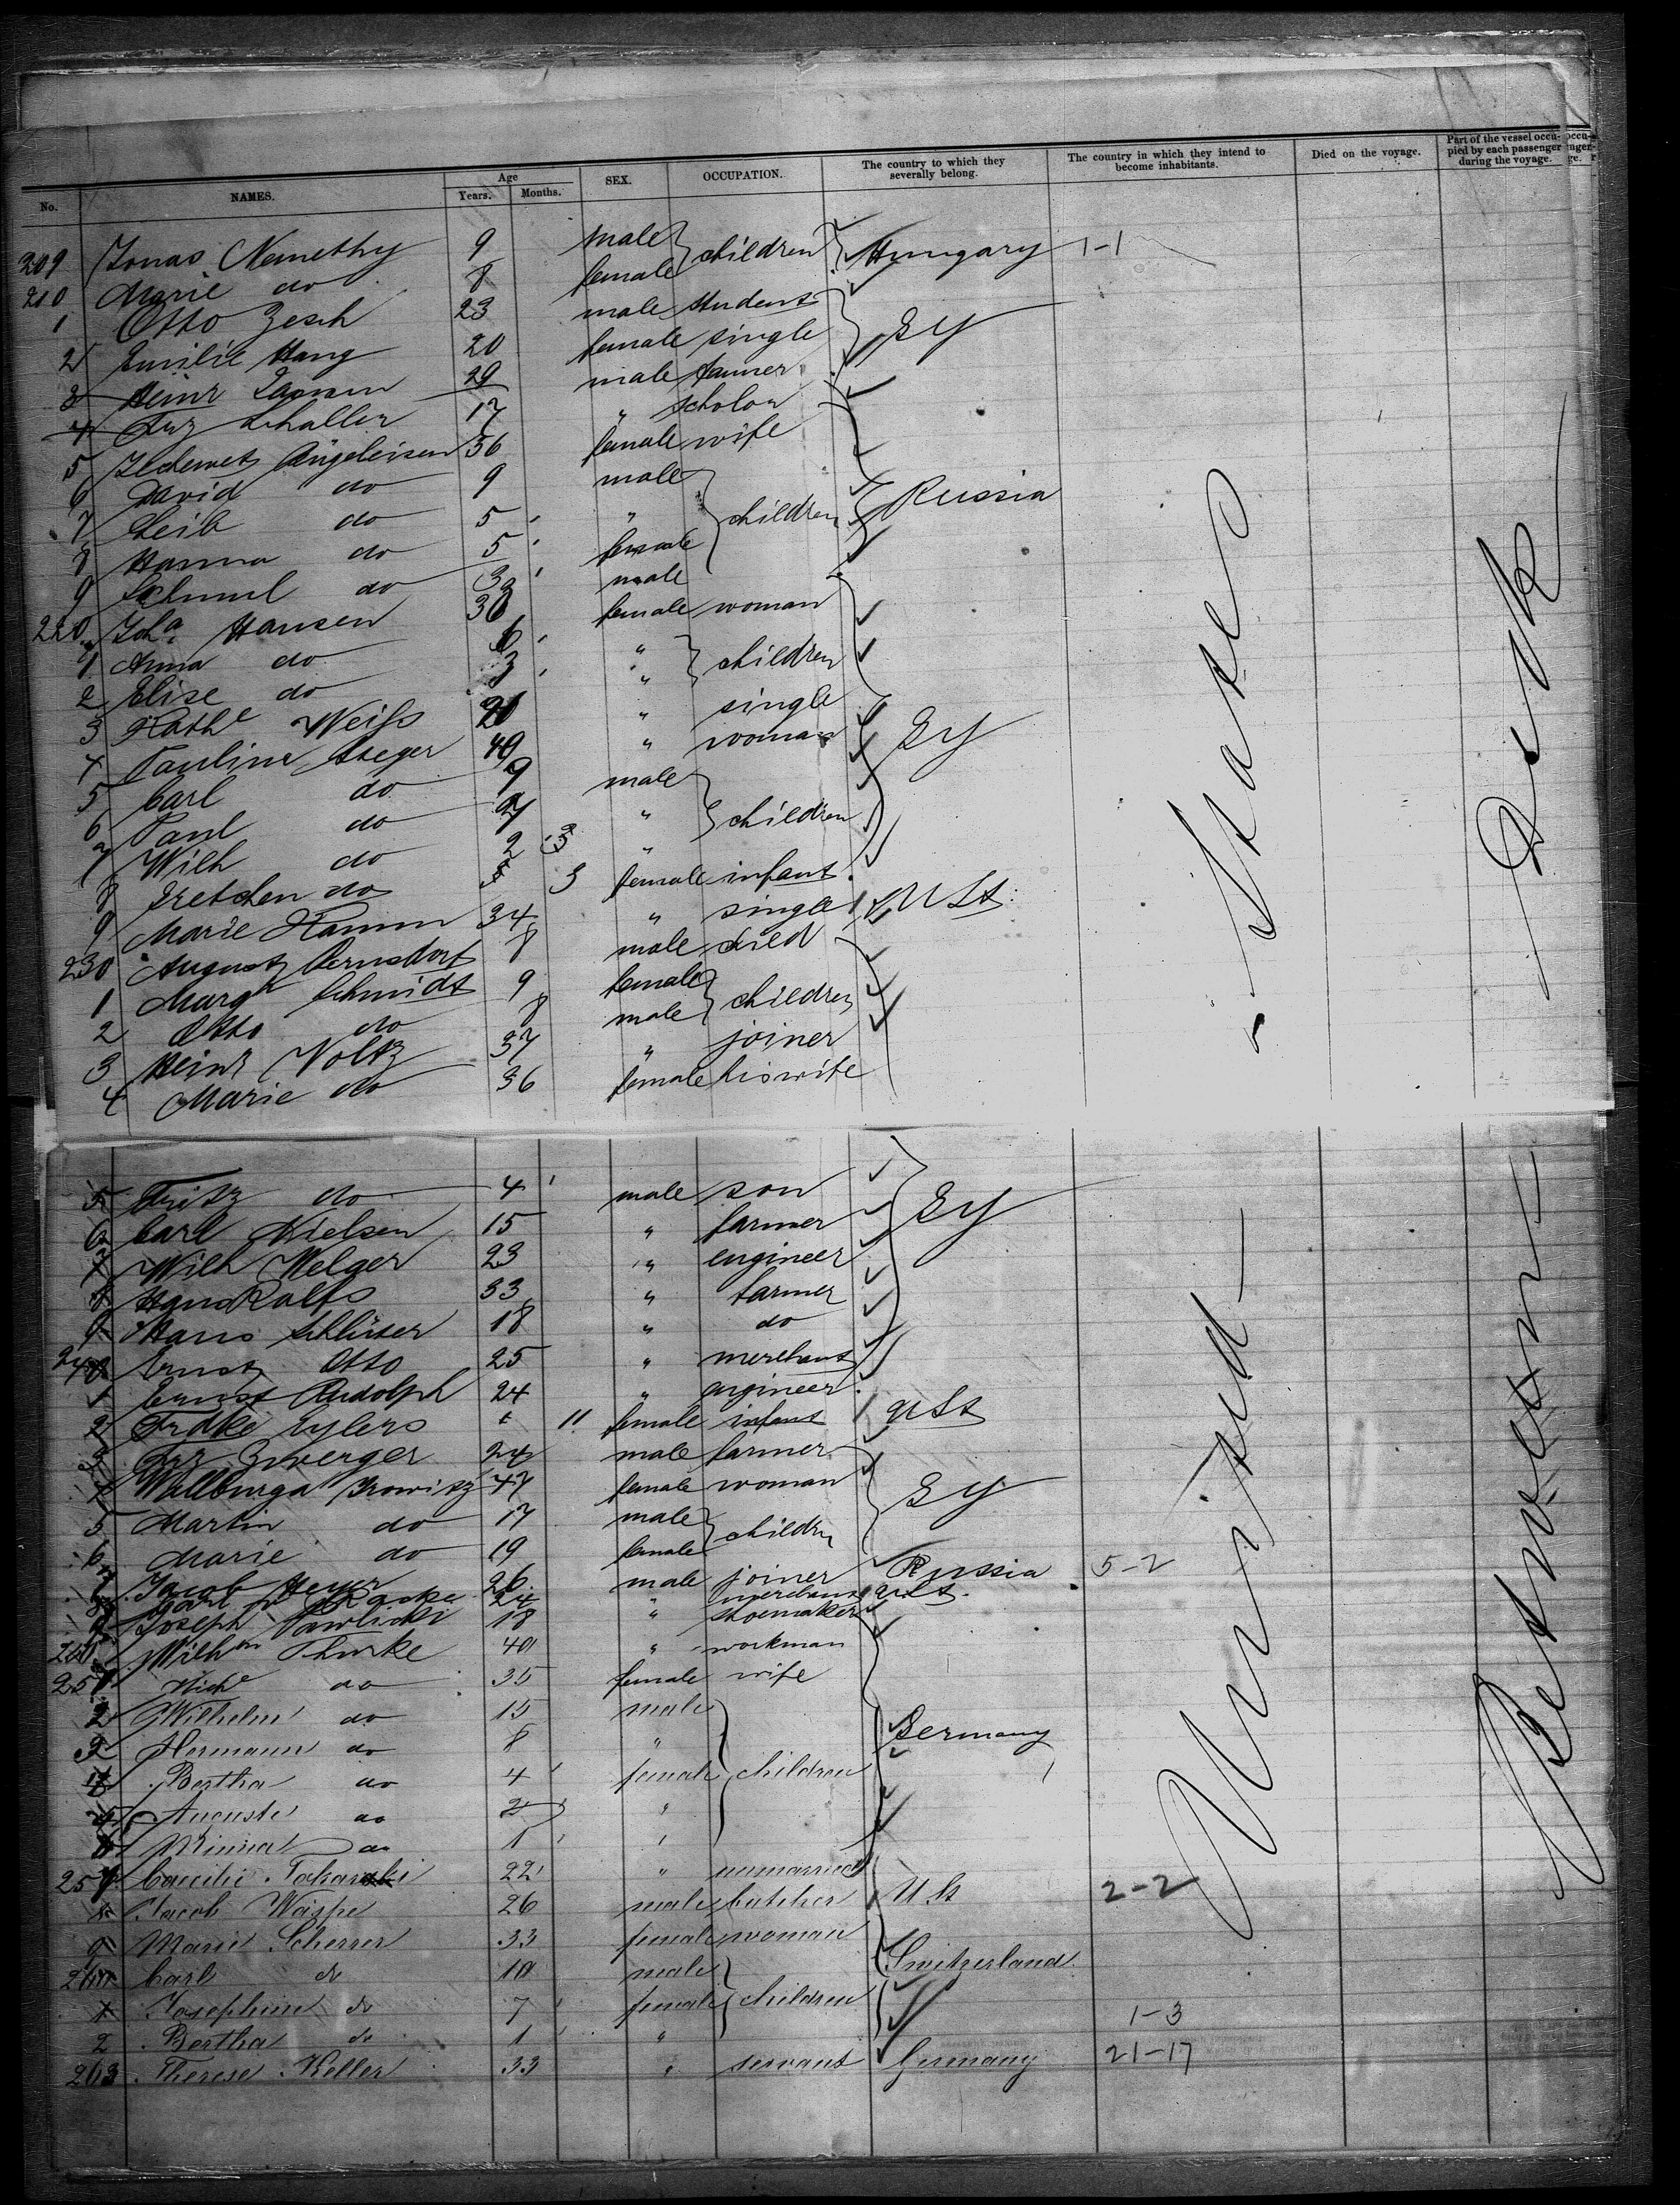 No. NAMES. Age Years. Months. SEX. OCCUPATION. The country to which they severally belong. The country in which they intend to become inhabitants. Died on the voyage. Part of the vessel occupied by each passenger during the voyage.
209 Jonas Nemethy 9 male children Hungary 1-1
210 Marie do 8 female
1 Otto Zesch 23 male student Gy
2 Emilie Haug 20 female single
3 Heinr 29 male farmer
4 Frz Schaller 17 " scholar
5 56 female wife
6 David do 9 male children Russia
7 Leib do 5 "
8 Hanna do 5 female
9 Schmul do 3 male
220 Joha Hansen 33 female woman
1 Anna do 6 " children
2 Elise do 3 "
3 Kathe Weiss 20 " single Gy
4 Pauline Steger 40 " woman
5 Carl do 9 male children
6 Paul do 7 "
7 Wilh do 2 "
8 Gretchen do 3 female infant
9 Marie Hamm 34 " single U St
230 August Bernsdorf 8 male child
1 Margh Schmidt 9 female children
2 Otto do 8 male
3 Heinr Voltz 37 " joiner
4 Marie do 36 female his wife
5 Fritz do 4 male son Gy
6 Carl Nielsen 15 " farmer
7 Wilh Melger 23 " engineer
8 Hans Ralfs 33 " farmer
9 Hans Schlüter 18 " do
240 Ernst Otto 25 " merchant
1 Ernst Rudolph 24 " engineer
2 Frdke Eylers 11 female infant U St
3 Frz Zwerger 24 male farmer
4 Wallburga Browitz 47 female woman Gy
5 Martin do 17 male children
6 Marie do 19 female
7 Jacob Heyer 26 male joiner Russia 5-2
8 Carl 24 " merchant U St
9 Joseph Pawlicki 18 " shoemaker
Wilhm Thurke 40 " workman
251 do 35 female wife
2 Wilhelm do 15 male children Germany
3 Hermann do 8 "
4 Bertha do 4 female
5 Auguste do 2 "
6 Minna do 1 "
257 Caecilie 22 " unmarried
8 Jacob Waspe 26 male butcher U St 2-2
9 Marie Scherrer 33 female woman Switzerland
260 Carl do 10 male children
1 Josephine do 7 female
2 Bertha do 1 " 1-3
263 Therese Keller 33 " servant Germany 21-17
United States
Between Deck